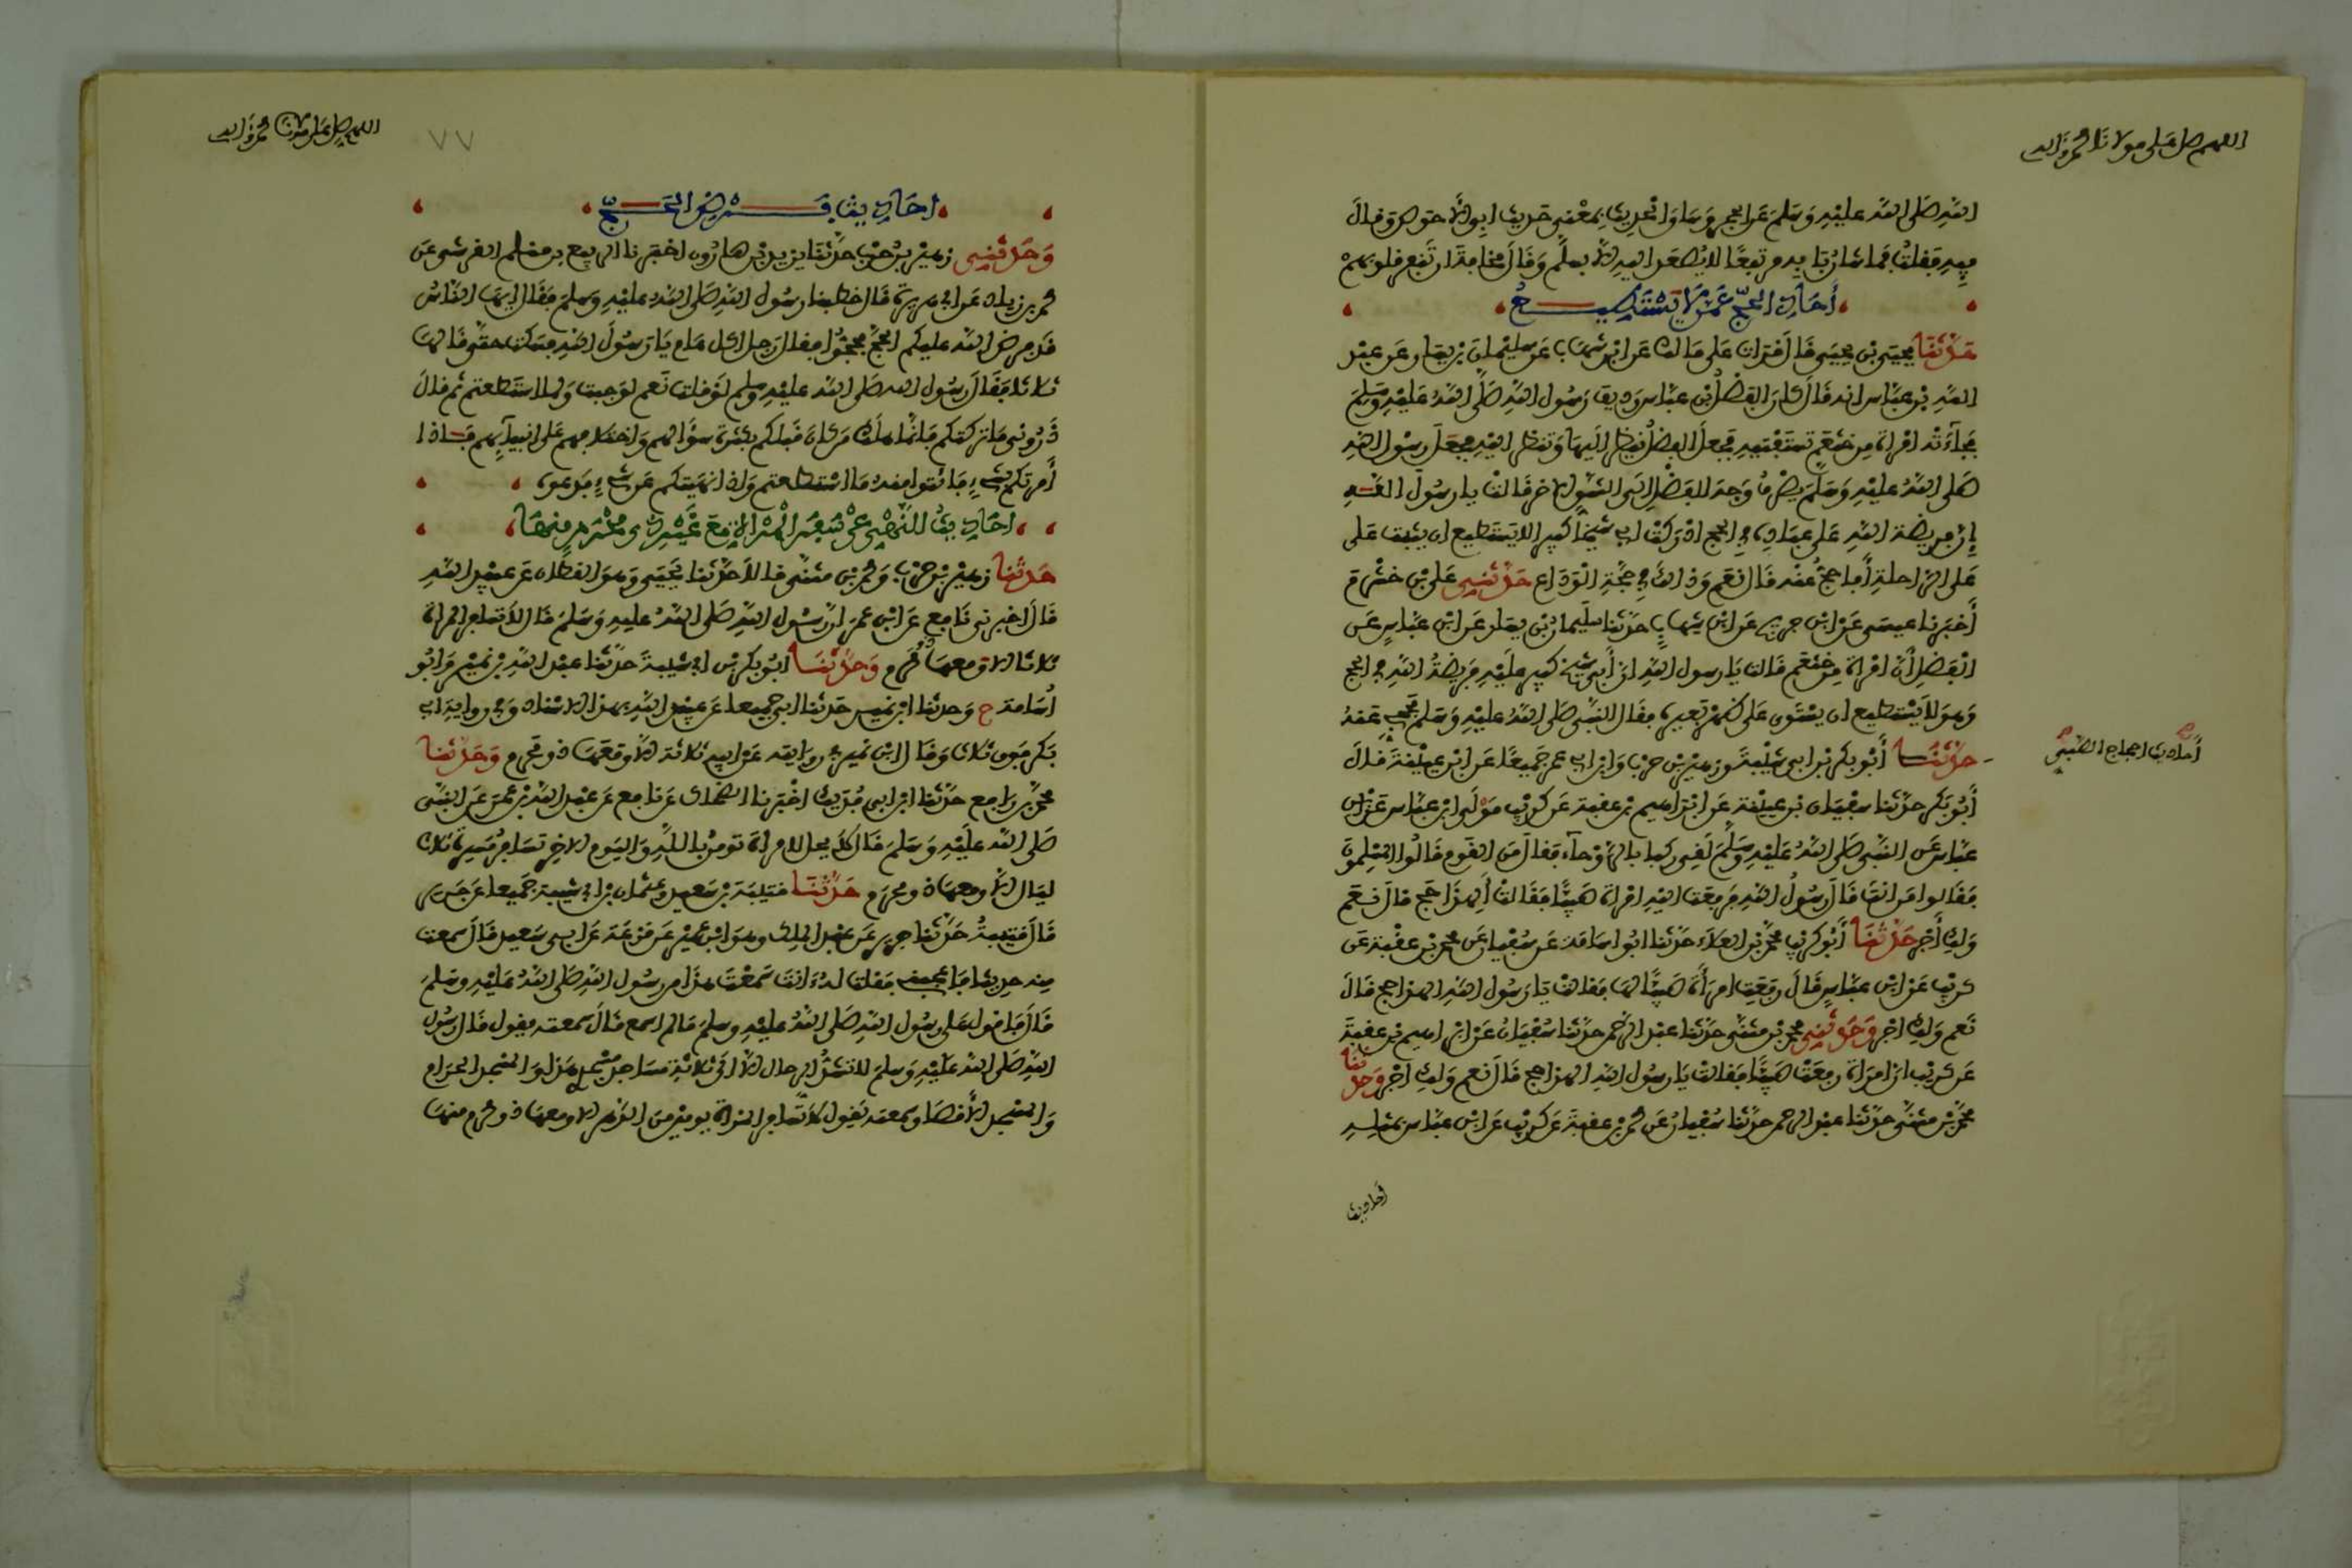 اللهم صل على مولانا محمد وآله
الله صلى الله عليه وسلم عن الحجر وساق الحديث بمعنى حديث ابي الاحوص وقال
فيه فقلت فما شان بابه مرتفعا لا يصعد اليه الا بسلم وقال مخافة ان تنفر قلوبهم
أحاديث الحج عمن لا يستطيع
حدثنا يحيى بن يحيى قال قرات على مالك عن ابن شهاب عن سليمان بن يسار عن عبد
الله بن عباس انه قال كان الفضل بن عباس رديف رسول الله صلى الله عليه وسلم
فجآءته امراة من خثعم تستفتيه فجعل الفضل ينظر اليها وتنظر اليه فجعل رسول الله
صلى الله عليه وسلم يصرف وجه الفضل الى الشق الاخر قالت يا رسول الله
إن فريضة الله على عباده في الحج ادركت ابي شيخا كبيرا لا يستطيع ان يثبت على
على الراحلة أفاحج عنه قال نعم وذالك في حجة الوداع حدثني علي بن خشرم
أخبرنا عيسى عن ابن جريج عن ابن شهاب حدثنا سليمان بن يسار عن ابن عباس عن
الفضل أن امراة من خثعم قالت يا رسول الله ان أبي شيخ كبير عليه فريضة الله في الحج
وهو لا يستطيع ان يستوي على ظهر بعيره فقال النبي صلى الله عليه وسلم فحجي عنه
حدثنا أبو بكر بن ابي شيبة وزهير بن حرب وابن ابي عمر جميعا عن ابن عيينة قال
أحاديث احجاج الصبي
أبو بكر حدثنا سفيان بن عيينة عن ابراهيم بن عقبة عن كريب مولى ابن عباس عن ابن
عباس عن النبي صلى الله عليه وسلم لقي ركبا بالروحآء فقال من القوم قالوا المسلمون
فقالوا من انت قال رسول الله فرفعت اليه امراة صبيا فقالت ألهذا حج قال نعم
ولك أجر حدثنا أبو كريب محمد بن العلاء حدثنا ابو اسامة عن سفيان عن محمد بن عقبة عن
كريب عن ابن عباس قال رفعت امرأة صبيا لها فقالت يا رسول الله الهذا حج قال
نعم ولك اجر وحدثني محمد بن مثنى حدثنا عبد الرحمن حدثنا سفيان عن ابراهيم بن عقبة
عن كريب ان امراة رفعت صبيا فقالت يا رسول الله الهذا حج قال نعم ولك اجر وحدثنا
محمد بن مثنى حدثنا عبد الرحمن حدثنا سفيان عن محمد بن عقبة عن كريب عن ابن عباس بمثله
أحاديث
اللهم صل على مولانا محمد وآله
٧٧
احاديث فرض الحج
وحدثني زهير بن حرب حدثنا يزيد بن هارون اخبرنا الربيع بن مسلم القرشي عن
محمد بن زياد عن ابي هريرة قال خطبنا رسول الله صلى الله عليه وسلم فقال ايها الناس
قد فرض الله عليكم الحج فحجوا فقال رجل اكل عام يا رسول الله فسكت حتى قالها
ثلاثا فقال رسول الله صلى الله عليه وسلم لو قلت نعم لوجبت ولما استطعتم ثم قال
ذروني ما تركتكم فانما هلك من كان قبلكم بكثرة سؤالهم واختلافهم على انبيآئهم فاذا
أمرتكم بشيء فاتوا منه ما استطعتم واذا نهيتكم عن شيء فدعوه
احاديث النهي عن سفر المراة الا مع ذي محرم منها
حدثنا زهير بن حرب ومحمد بن مثنى قالا حدثنا يحيى وهو القطان عن عبيد الله
قال اخبرني نافع عن ابن عمر ان رسول الله صلى الله عليه وسلم قال لا تسافر المراة
ثلاثا الا ومعها ذو محرم وحدثنا ابو بكر بن ابي شيبة حدثنا عبد الله بن نمير وابو
أسامة ح وحدثنا ابن نمير حدثنا ابي جميعا عن عبيد الله بهذا الاسناد وفي رواية ابي
بكر فوق ثلاث وقال ابن نمير في روايته عن ابيه ثلاثة الا ومعها ذو محرم وحدثنا
محمد بن رافع حدثنا ابن ابي فديك اخبرنا الضحاك عن نافع عن عبد الله بن عمر عن النبي
صلى الله عليه وسلم قال لا يحل لامراة تومن بالله واليوم الاخر تسافر مسيرة ثلاث
ليال الا ومعها ذو محرم حدثنا قتيبة بن سعيد وعثمان بن ابي شيبة جميعا عن جرير
قال قتيبة حدثنا جرير عن عبد الملك وهو ابن عمير عن قزعة عن ابي سعيد قال سمعت
منه حديثا فاعجبني فقلت له ءانت سمعت هذا من رسول الله صلى الله عليه وسلم
قال فاقول على رسول الله صلى الله عليه وسلم ما لم اسمع قال سمعته يقول قال رسول
الله صلى الله عليه وسلم لا تشدوا الرحال الا الى ثلاثة مساجد مسجدي هذا والمسجد الحرام
والمسجد الاقصا وسمعته يقول لا تسافر المراة يومين من الدهر الا ومعها ذو محرم منها